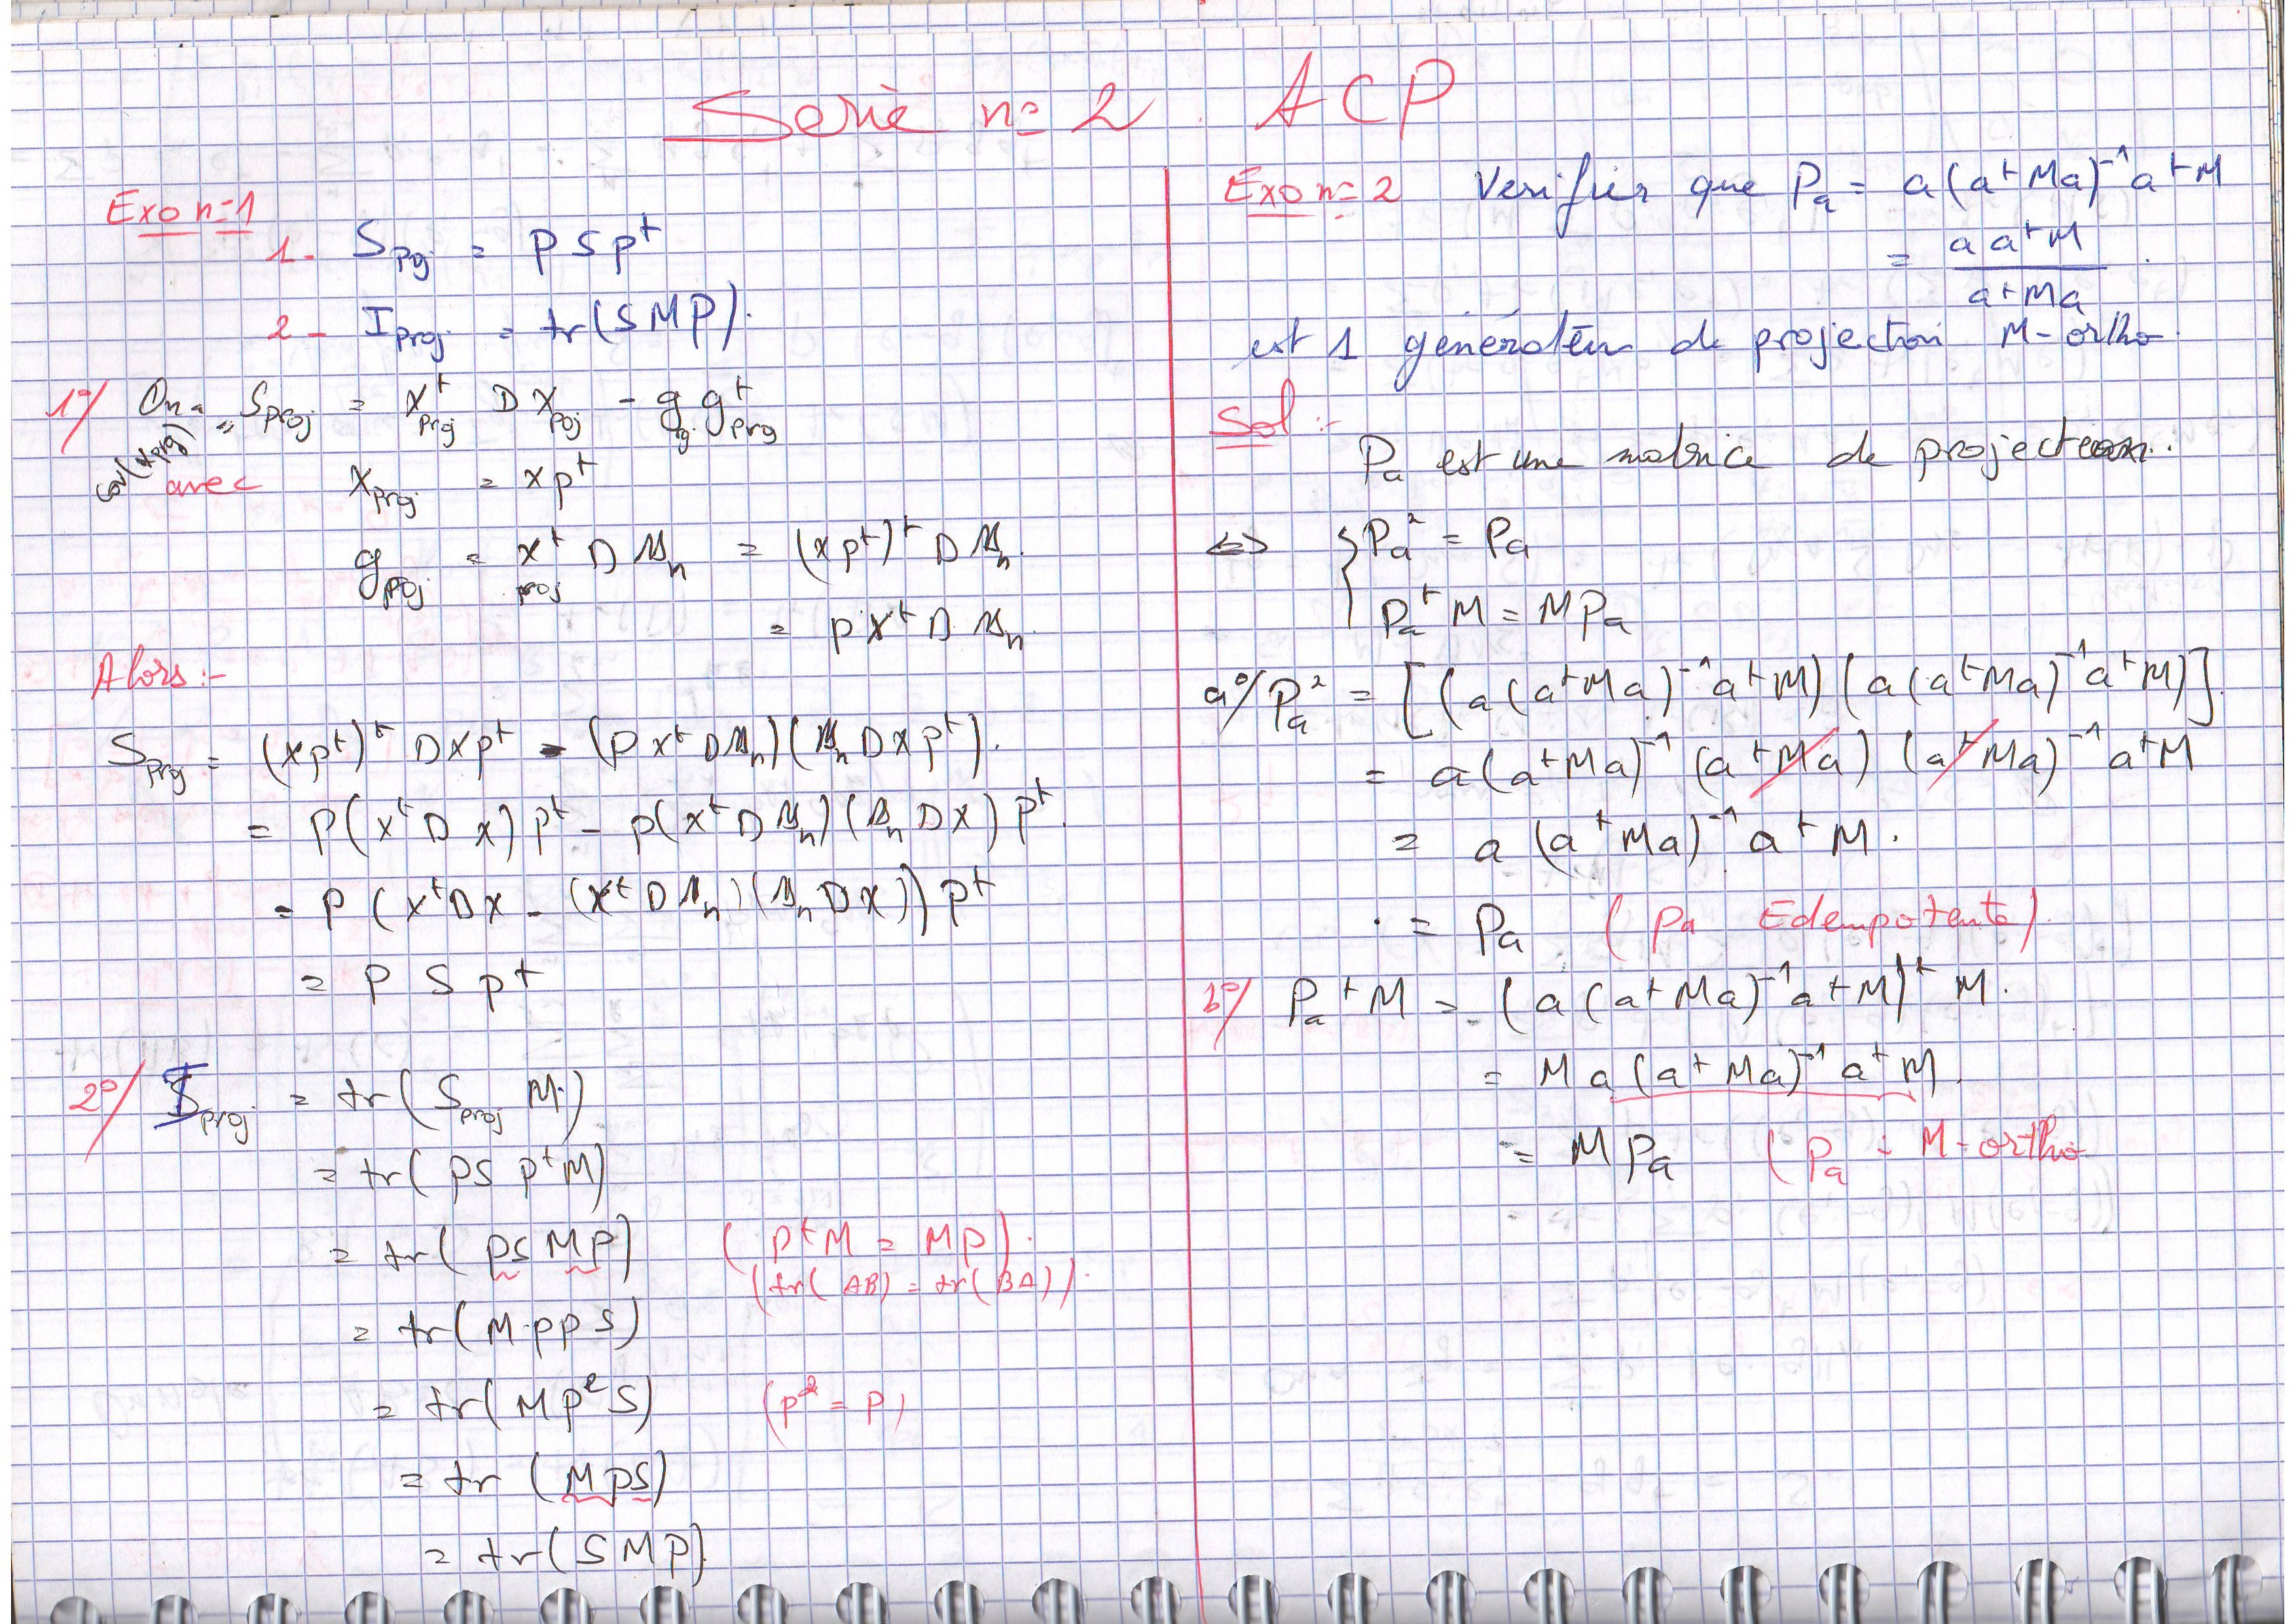 Serie n= 2 . ACP
Exo n=1
1- S_proj = P S P^t
2- I_proj = tr(SMP).
1°/ On a S_proj = X^t_proj D X_proj - g g^t_proj
= cov(X_proj)
avec X_proj = X P^t
g_proj = X^t_proj D 1_n = (X P^t)^t D 1_n.
= P X^t D 1_n.
Alors :-
S_proj = (X P^t)^t D X P^t - (P X^t D 1_n)(1_n D X P^t).
= P (X^t D X) P^t - P(X^t D 1_n)(1_n D X) P^t.
= P (X^t D X - (X^t D 1_n)(1_n D X)) P^t
= P S P^t
2°/ I_proj = tr(S_proj M)
= tr(PS P^t M)
= tr(PS MP) (P^t M = MP).
(tr(AB) = tr(BA)).
= tr(M P P S)
= tr(M P² S) (P² = P)
= tr (MPS)
= tr(SMP).
Exo n=2 Verifier que P_a = a(a^t Ma)^-1 a^t M
= a a^t M / a^t Ma .
est 1 générateur de projection M-ortho.
Sol :-
P_a est une matrice de projection.
<=> { P_a² = P_a
P_a^t M = M P_a
a°/ P_a² = [(a(a^t Ma)^-1 a^t M)(a(a^t Ma)^-1 a^t M)].
= a(a^t Ma)^-1 (a^t Ma) (a^t Ma)^-1 a^t M
= a (a^t Ma)^-1 a^t M.
. = P_a (Pa Edempotente).
b°/ P_a^t M = (a(a^t Ma)^-1 a^t M)^t M.
= M a (a^t Ma)^-1 a^t M.
= M P_a (P_a : M-ortho